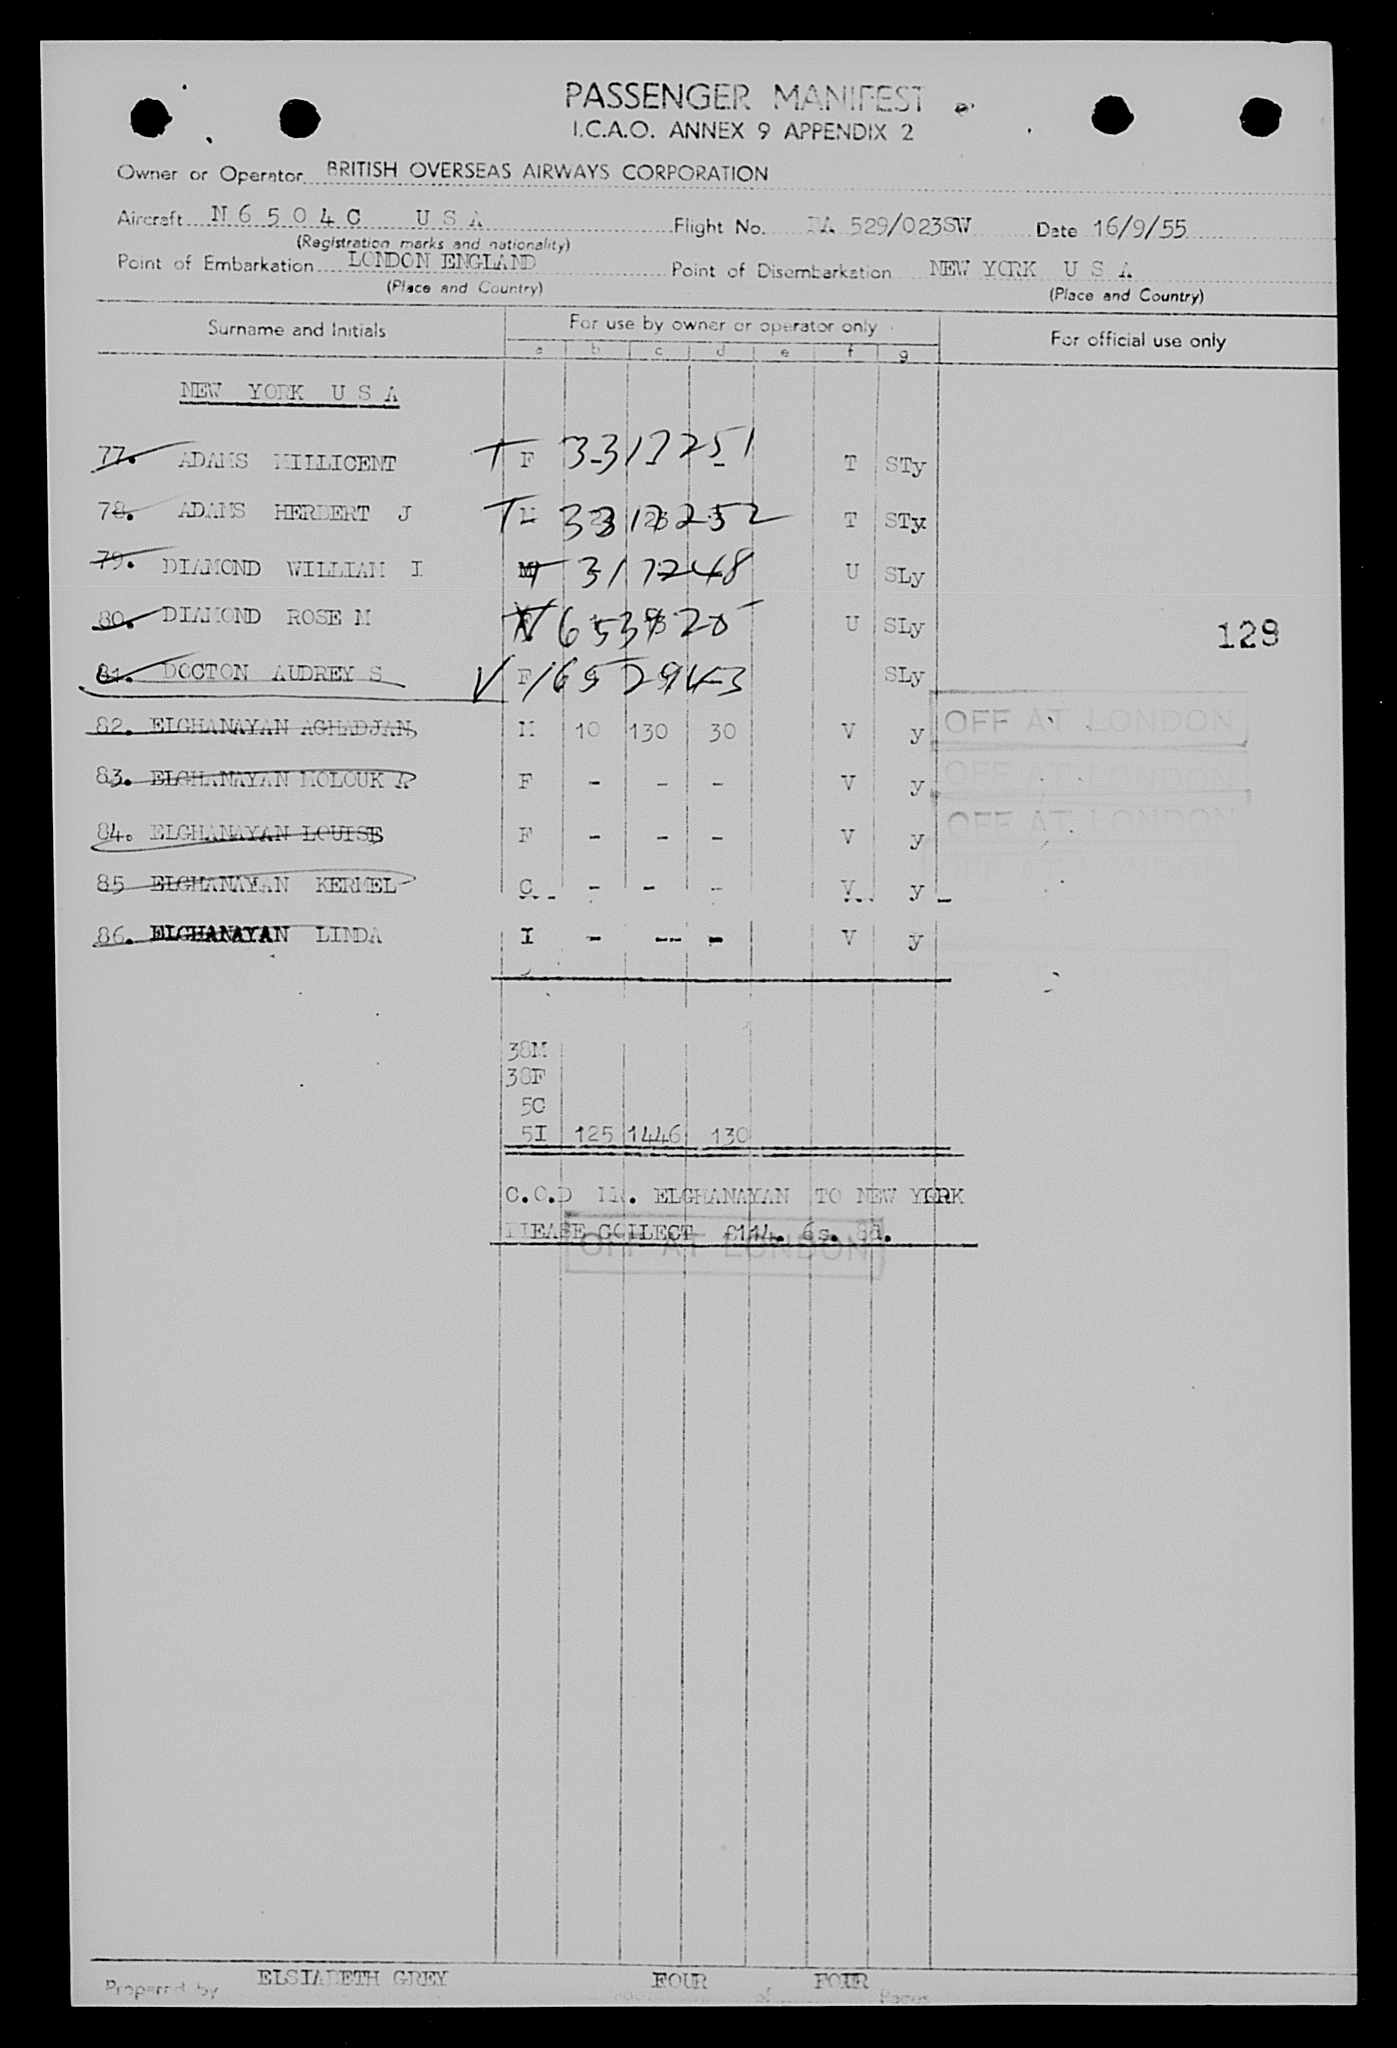 PASSENGER MANIFEST
I.C.A.O. ANNEX 9 APPENDIX 2
Owner or Operator BRITISH OVERSEAS AIRWAYS CORPORATION
Aircraft N6504C USA Flight No. BA 529/023SW Date 16/9/55
(Registration marks and nationality)
Point of Embarkation LONDON ENGLAND Point of Disembarkation NEW YORK U S A
(Place and Country) (Place and Country)
Surname and Initials For use by owner or operator only For official use only
a b c d e f g
NEW YORK U S A
77. ADAMS MILLICENT T F 3317251 T STy
78. ADAMS HERBERT J T M 3317252 T STy
79. DIAMOND WILLIAM I M T 317248 U SLy
80. DIAMOND ROSE M V U SLy
129
81. DOCTON AUDREY S V F SLy
82. ELGHANAYAN AGHADJAN M 10 130 30 V y OFF AT LONDON
83. ELGHANAYAN MOLOUK A F - - - V y OFF AT LONDON
84. ELGHANAYAN LOUISE F - - - V y OFF AT LONDON
85 ELGHANAYAN KERMEL C - - - V y
86. ELGHANAYAN LINDA I - -- - V y
38M
38F
5C
5I 125 1446 130
C.O.D MR. ELGHANAYAN TO NEW YORK
PLEASE COLLECT £114. 6s. 8d.
OFF AT LONDON
Prepared by ELSIABETH GREY FOUR of FOUR Pages